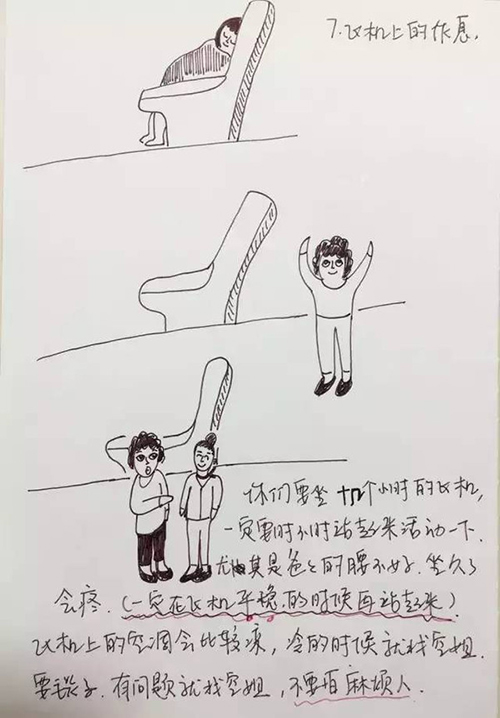 7.飞机上的作息.
你们要坐十几个小时的飞机,
一定要时不时站起来活动一下.
尤其是爸爸的腰不好.坐久了
会疼.(一定在飞机平稳的时候再站起来)
飞机上的空调会比较凉,冷的时候就找空姐
要毯子.有问题就找空姐,不要怕麻烦人.